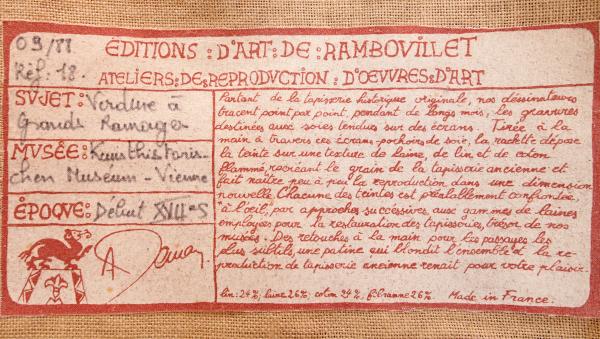 09/88
Réf: 18.
ÉDITIONS : D'ART : DE : RAMBOVILLET
ATELIERS : DE : REPRODUCTION : D'ŒUVRES : D'ART
SVJET : Verdure à
Grands Ramages
MVSÉE : Kunsthistoris-
chen Museum - Vienne
ÉPOQVE : Début XVIIe S
Partant de la tapisserie historique originale, nos dessinateurs
tracent point par point, pendant de longs mois, les gravures
destinées aux soies tendues sur des écrans. Tirée à la
main à travers ces écrans-pochoirs de soie, la raclette dépose
la teinte sur une texture de laine, de lin et de coton
flammé, recréant le grain de la tapisserie ancienne et
fait naître peu à peu la reproduction dans une dimension
nouvelle. Chacune des teintes est préalablement confrontée,
"à l'œil, par approches successives aux gammes de laines
employées pour la restauration des tapisseries, trésor de nos
musées. Des retouches à la main pour les passages les
plus subtils, une patine qui blondit l'ensemble et la re-
production de tapisserie ancienne renaît pour votre plaisir.
lin: 24%, laine 26%, coton 24%, fibranne 26% Made in France.